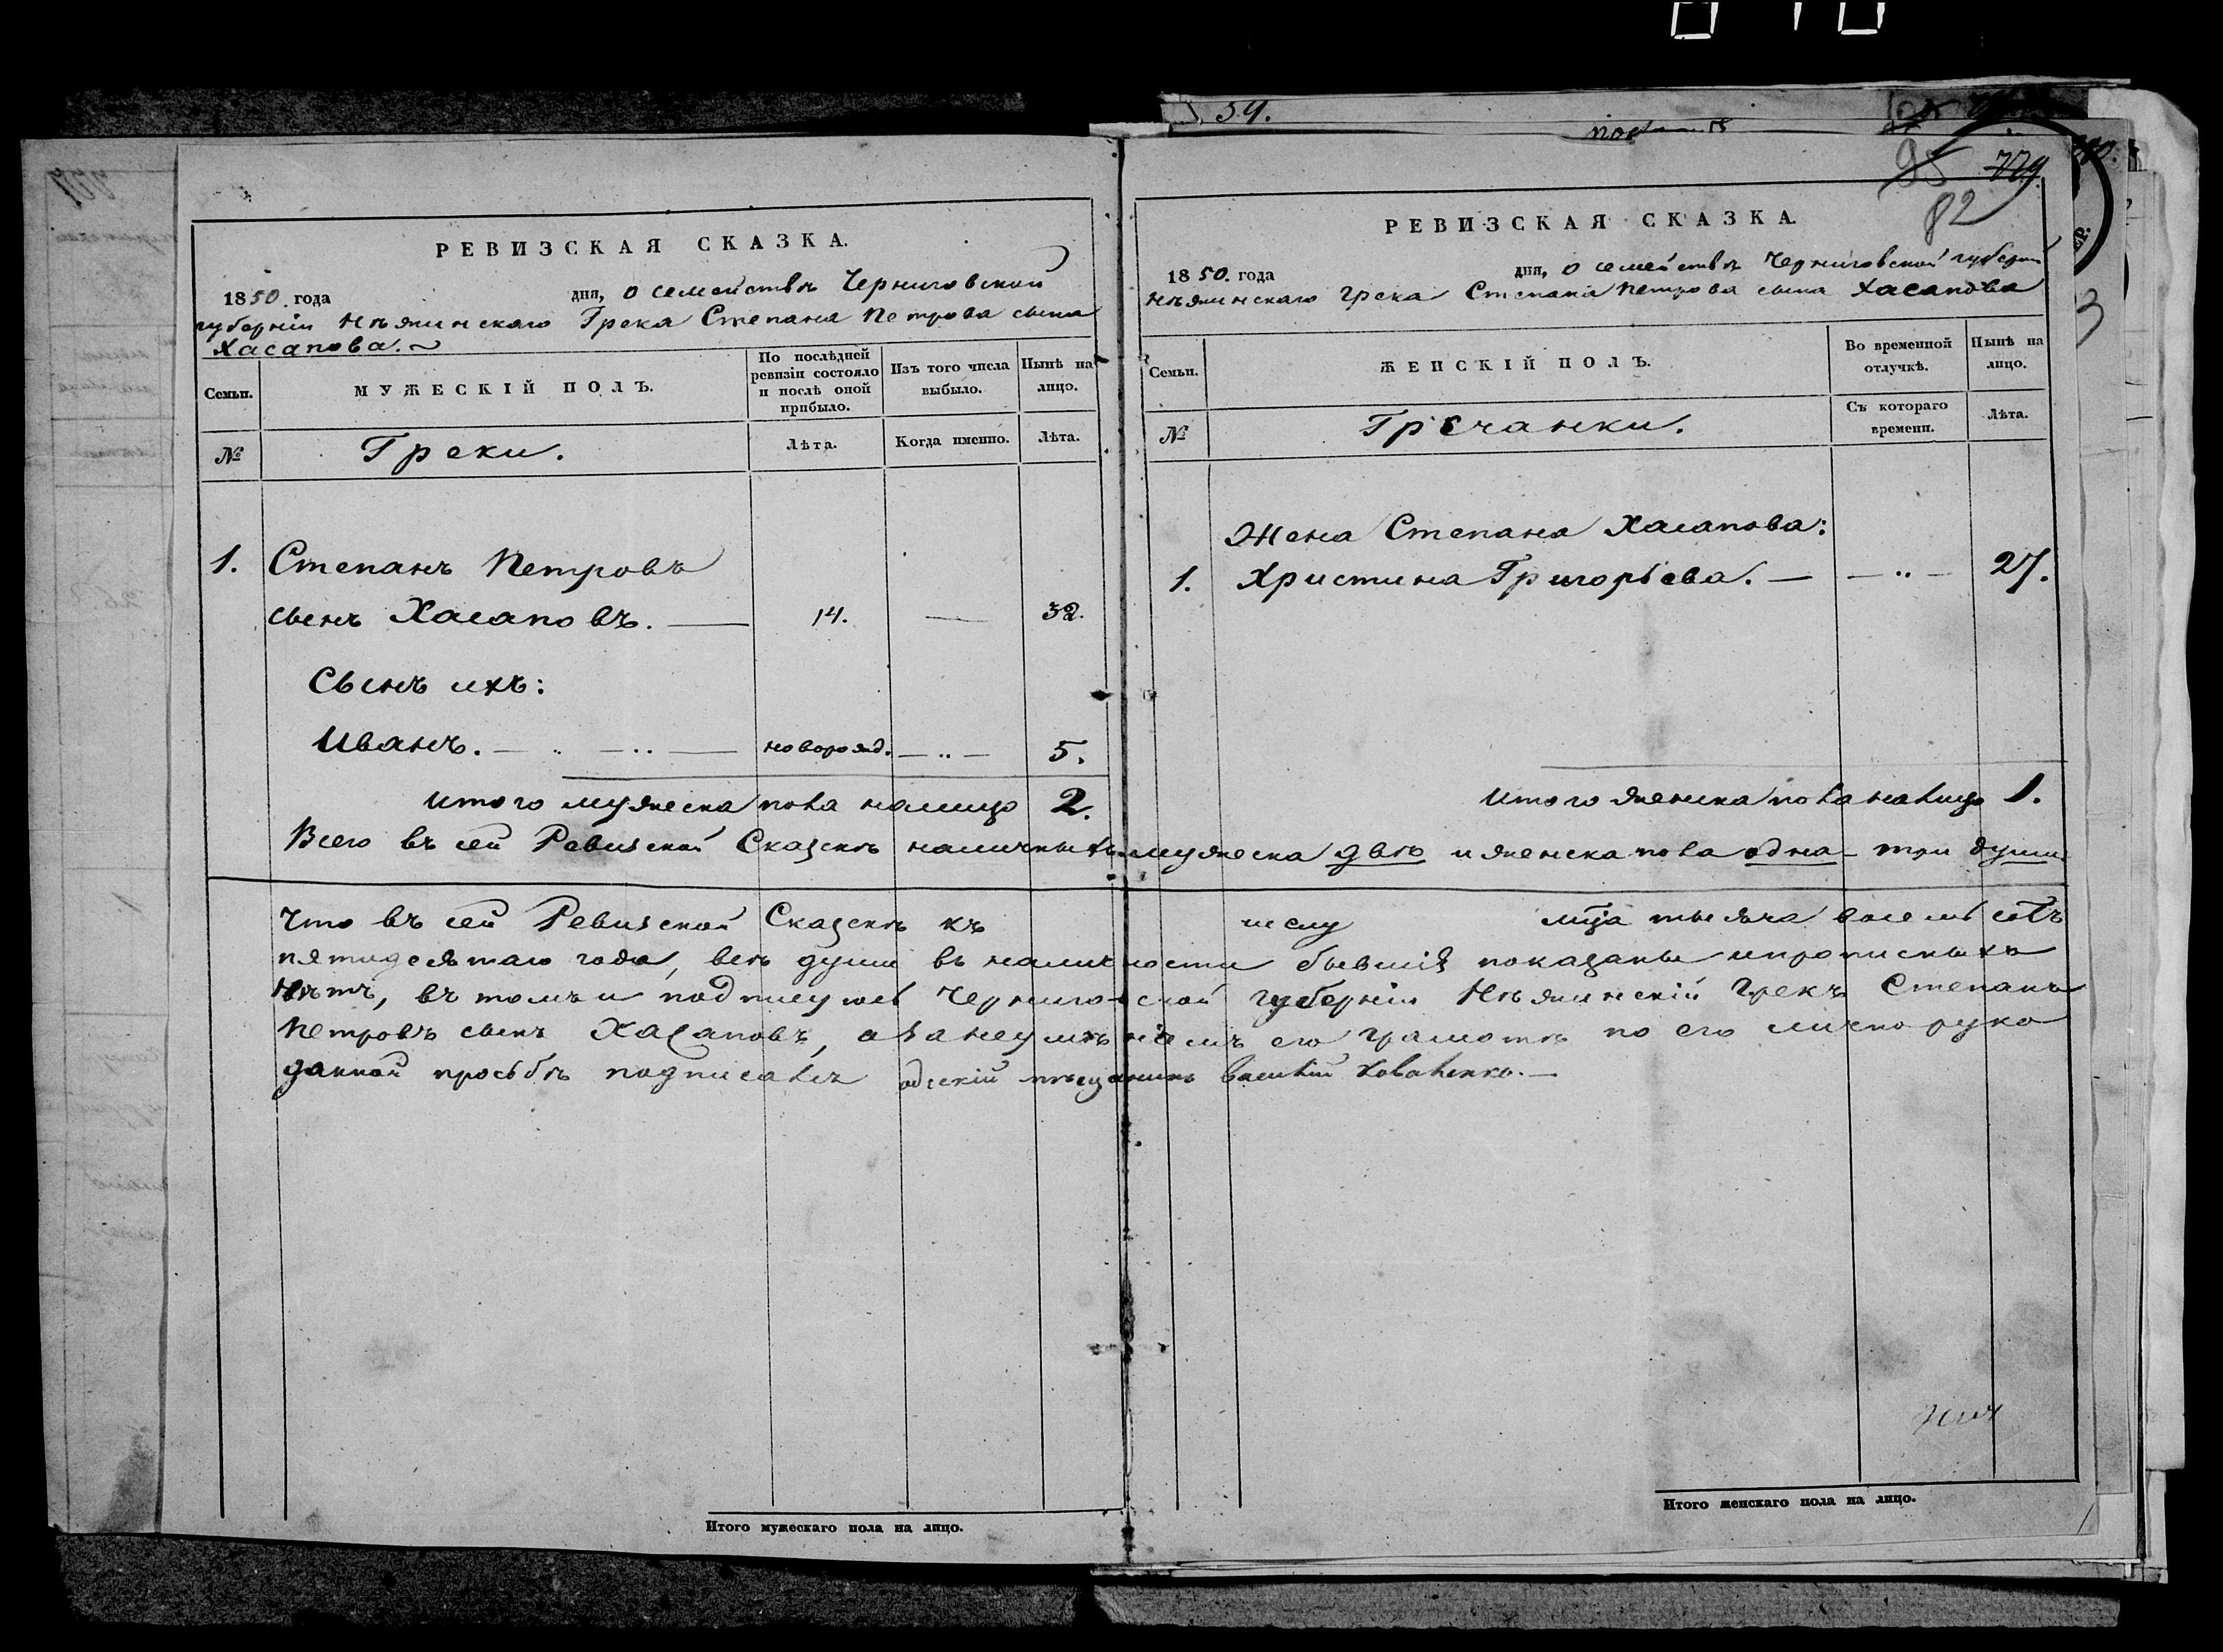 34.
95 779.
82
РЕВИЗСКАЯ СКАЗКА.
1850. года дня, о семействѣ Черниговской
губерніи Нѣжинскаго Грека Степана Петрова сына
Хасапова.~
Семьи. МУЖЕСКІЙ ПОЛЪ. По послѣдней ревизіи состояло и послѣ оной прибыло. Изъ того числа выбыло. Нынѣ на лицо.
№ Греки. Лѣта. Когда именно. Лѣта.
1. Степанъ Петровъ
сынъ Хасаповъ. — 14. — 32.
Сынъ ихъ:
Иванъ. — .. — .. — новорожд. — .. — 5.
Итого мужеска пола налицо 2.
РЕВИЗСКАЯ СКАЗКА.
1850. года дня, о семействѣ Черниговской губерніи
Нѣжинскаго Грека Степана Петрова сына Хасапова
Семьи. ЖЕНСКІЙ ПОЛЪ. Во временной отлучкѣ. Нынѣ на лицо.
№ Гречанки. Съ котораго времени. Лѣта.
Жена Степана Хасапова:
1. Христина Григорьева. — — .. — 27.
Итого женска пола налицо 1.
Всего въ сей Ревизской Сказкѣ наличныхъ мужеска двѣ и женска пола одна – три души
Что въ сей Ревизской Сказкѣ къ числу мца тысяча восемь сотъ
пятидесятаго года, всѣ души въ наличности бывшія показаны и прописныхъ
нѣтъ, въ томъ и подписуюсь Черниговской губерніи Нѣжинскій Грекъ Степанъ
Петровъ сынъ Хасаповъ, а за неумѣніемъ его грамотѣ по его лично руко
данной просьбѣ подписалъ одескій мѣщанинъ Василій Коваленко. —
Итого мужескаго пола на лицо.
Итого женскаго пола на лицо.